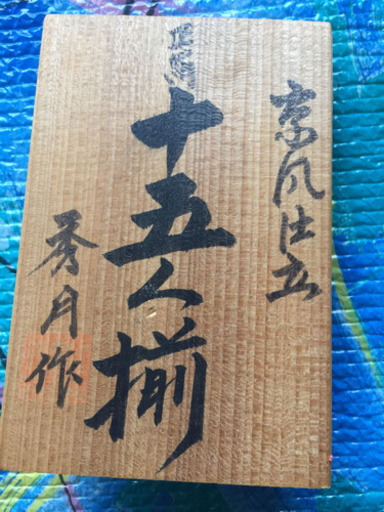 京風仕立
十五人揃
秀月作